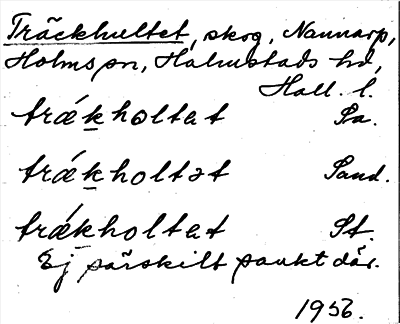 Träckhultet, skog, Nannarp,
Holms sn, Halmstads hd,
Hall. l.
trǽkholtat Sa.
trǽkholtət Sand.
trǽkholtat St.
Ej särskilt sankt där.
1956.